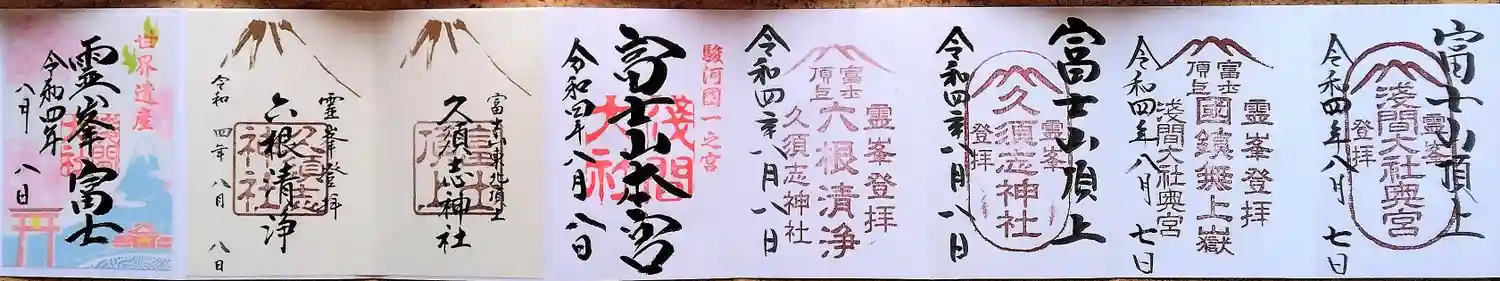 富士山頂上
霊峯
淺間大社奥宮
登拝
令和四年八月 七日
霊峯登拝
富士
頂上
國鎮無上嶽
淺間大社奥宮
令和四年八月 七日
富士山頂上
霊峯
久須志神社
登拝
令和四年八月八日
霊峯登拝
富士
頂上
六根清浄
久須志神社
令和四年八月八日
駿河國一之宮
富士山本宮
淺間
大社
令和四年八月八日
富士山東北頂上
久須志神社
富士
頂上
霊峯登拝
六根清浄
久須志
神社
令和 四年 八月 八日
世界遺産
霊峯富士
淺間
大社
令和四年
八月 八日